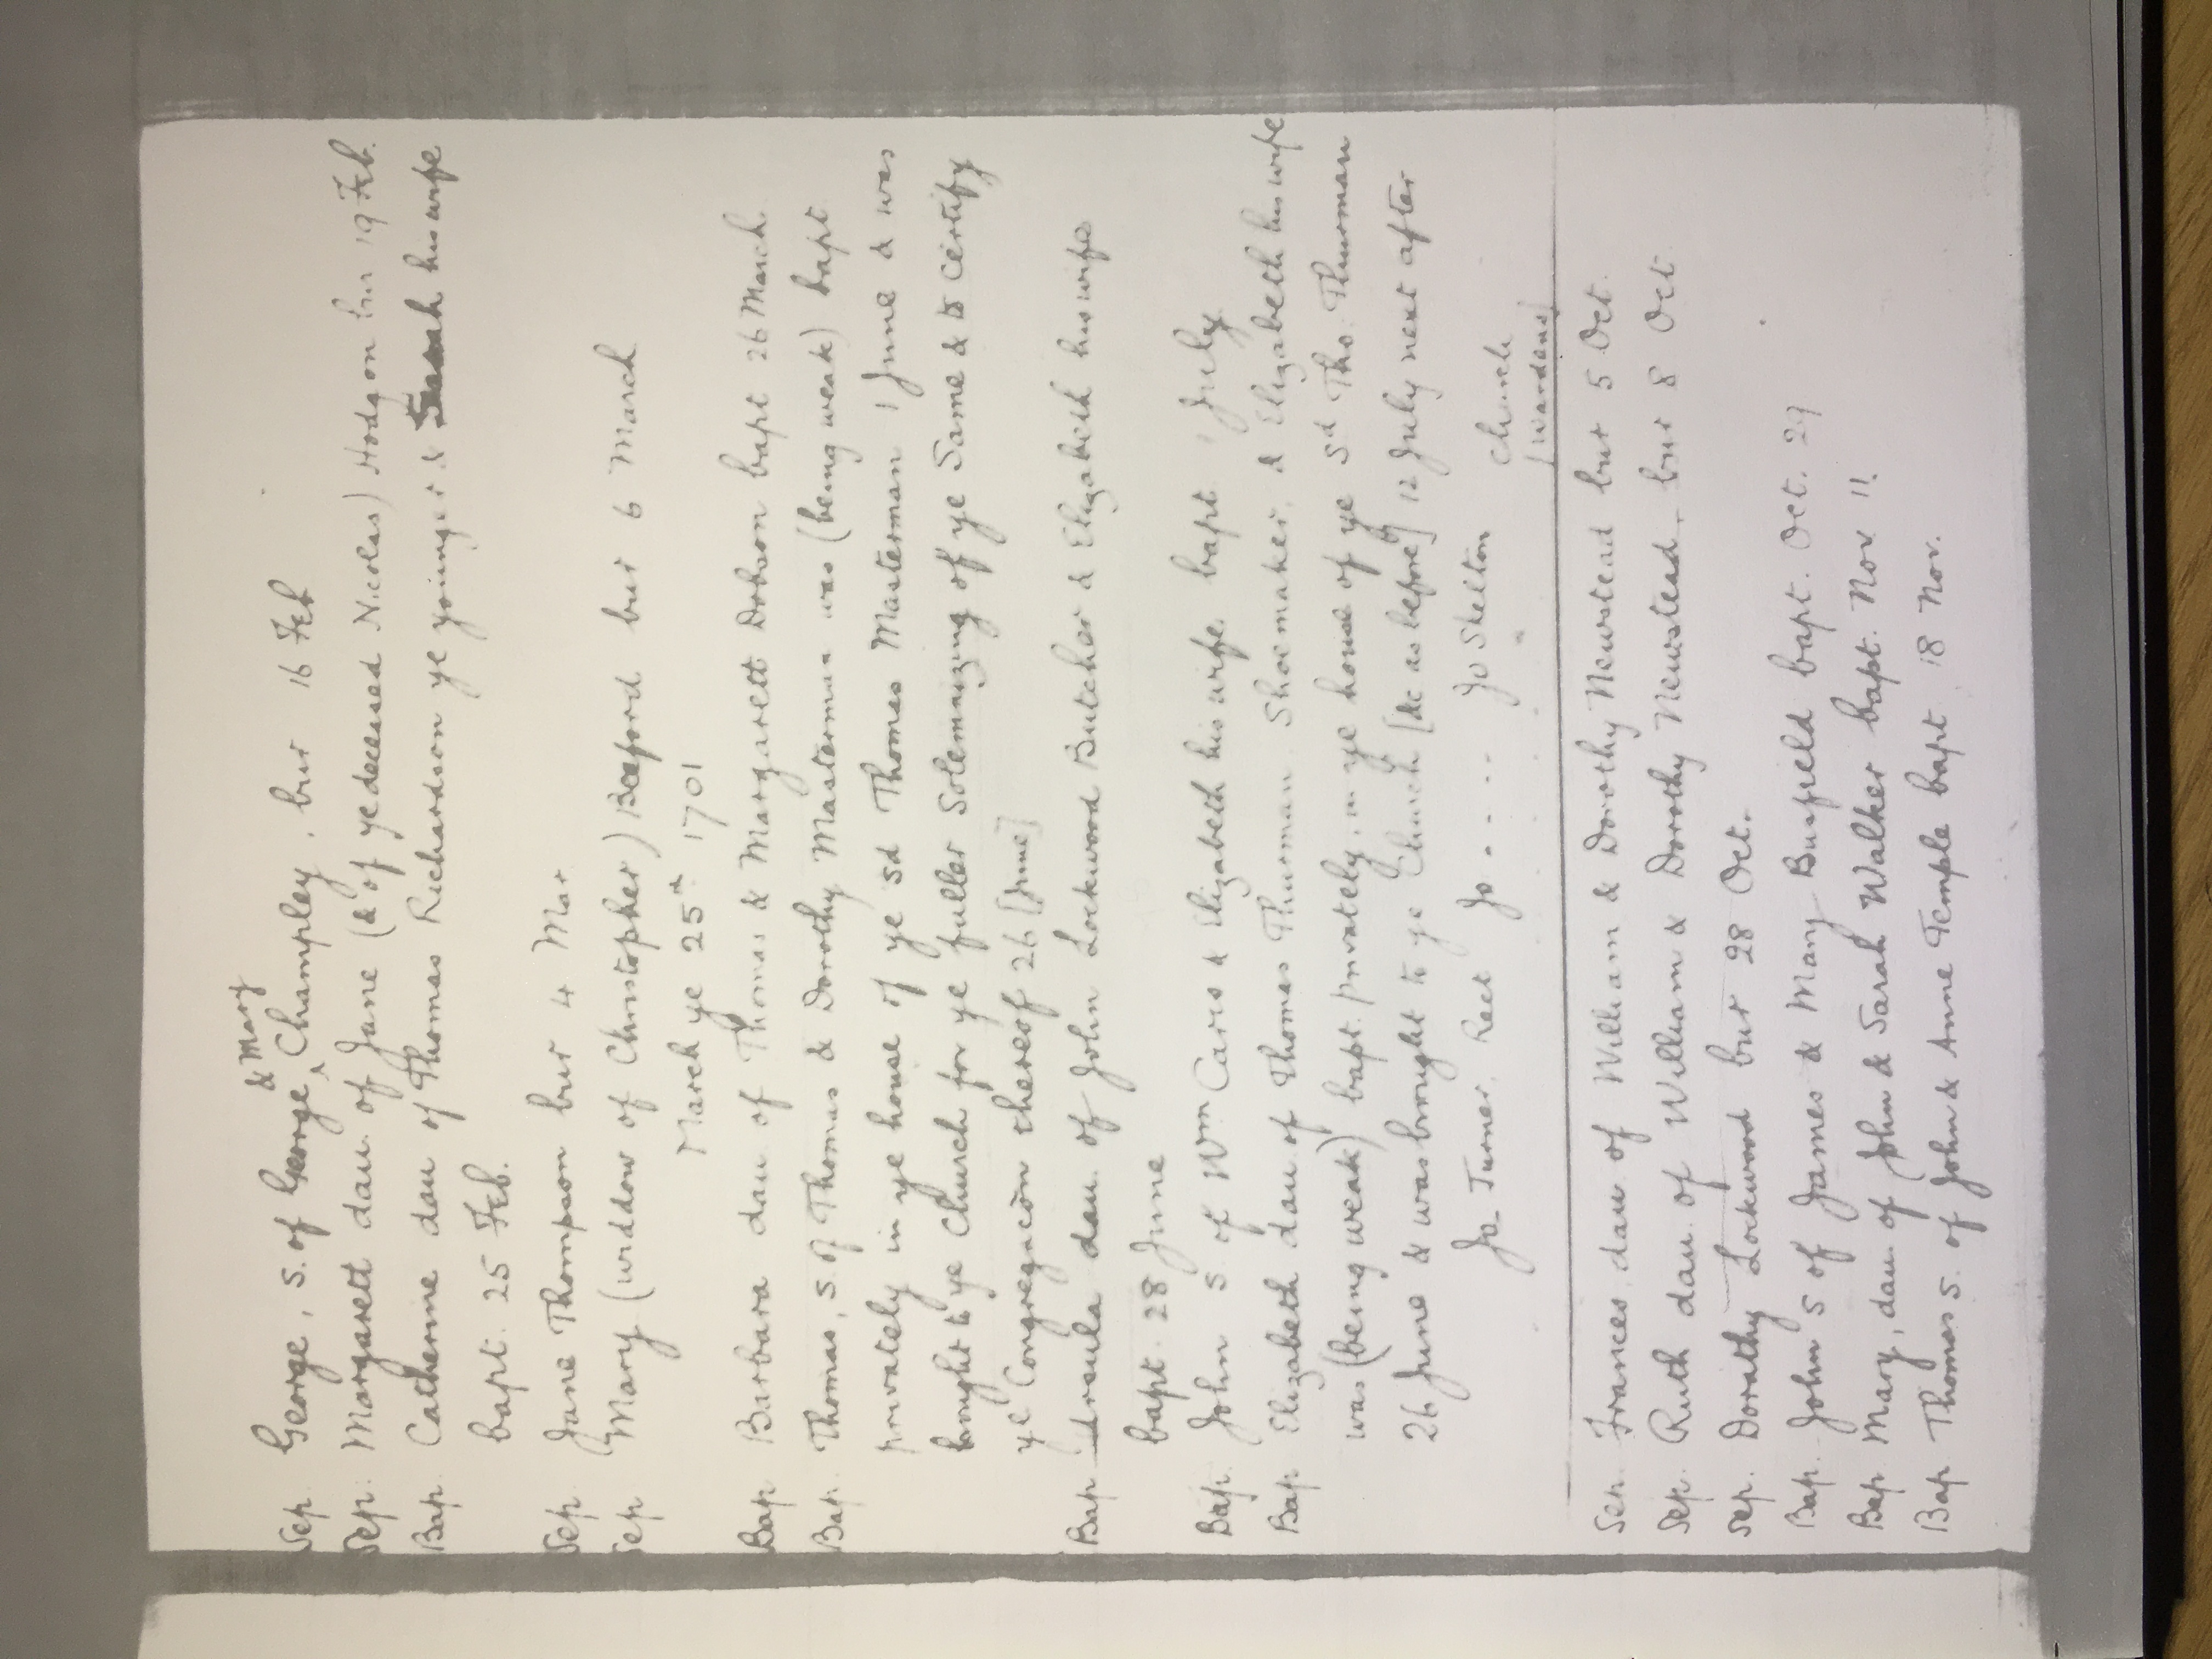 Sep. George, s. of George & Mary Champley, bur 16 Feb
Sep. Margarett dau. of Jane (& of ye deceased Nicolas) Hodgon bur 19 Feb.
Bap. Catherine dau of Thomas Richardson ye younger & Sarah his wife
bapt. 25 Feb.
Sep. Jane Thompson bur 4 Mar
Sep Mary (widdow of Christopher) Beeford bur 6 March
March ye 25th 1701
Bap Barbara dau of Thomas & Margarett Dobson bapt 26 March
Bap. Thomas, s. of Thomas & Dorothy Masterman was (being weak) bapt
privately in ye house of ye sd Thomas Masterman 1 June & was
brought to ye Church for ye fuller Solemnizing of ye Same & to Certify
ye Congregacōn thereof 26 [June]
Bap Ursula dau. of John Lockwood Butcher & Elizabeth his wife
bapt. 28 June
Bap. John s. of Wm Caris & Elizabeth his wife. bapt 1 July
Bap Elizabeth dau. of Thomas Thurman Shoemaker, & Elizabeth his wife
was (being weak) bapt. privately, in ye house of ye sd Tho. Thurman
26 June & was brought to ye Church [&c as before] 12 July next after
Jo. Turner. Rect Jo. .... Jo Shelton Church
wardens
Sep. Frances, dau. of William & Dorothy Newstead bur 5 Oct.
Sep. Ruth dau. of William & Dorothy Newstead, bur 8 Oct
Sep. Dorathy Lockwood bur 28 Oct.
Bap. John s of James & Mary Busfield bapt. Oct. 29
Bap Mary, dau. of John & Sarah Walker bapt. Nov 11.
Bap Thomas s. of John & Anne Temple bapt. 18 Nov.